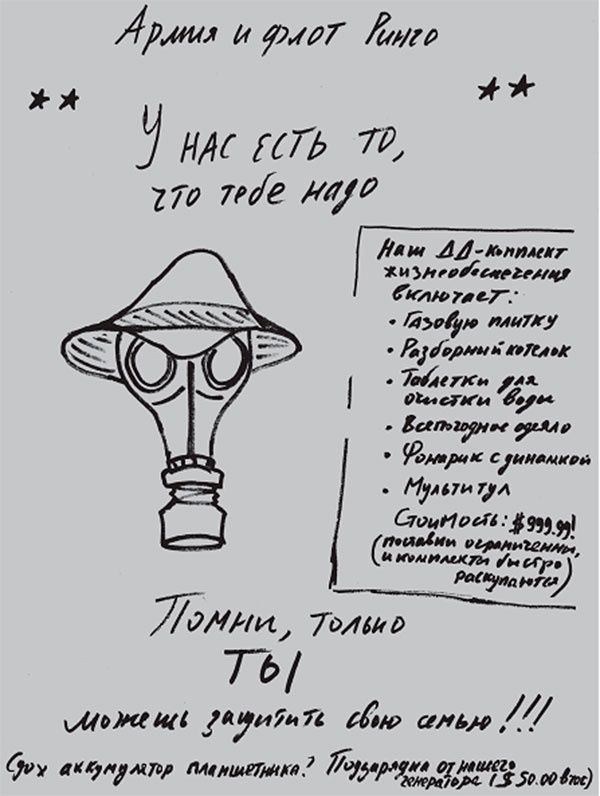 Армия и флот Ринго
У НАС ЕСТЬ ТО,
что тебе надо
Наш ДД-комплект
жизнеобеспечения
включает:
• Газовую плитку
• Разборный котелок
• Таблетки для
очистки воды
• Всепогодное одеяло
• Фонарик с динамкой
• Мультитул
Стоимость: $999.99!
(поставки ограниченны,
и комплекты быстро
раскупаются)
Помни, только
ТЫ
можешь защитить свою семью!!!
Сдох аккумулятор планшетника? Подзарядка от нашего
генератора ($50.00 в час)